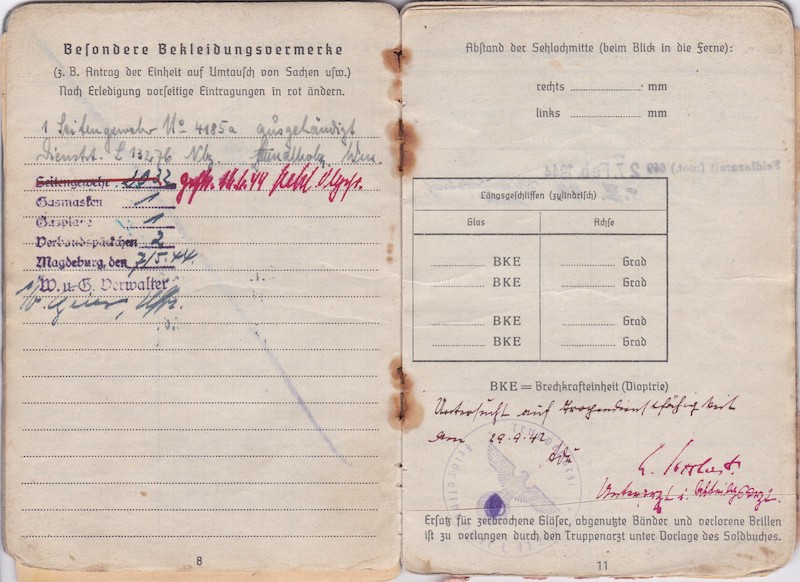 Besondere Bekleidungsvermerke
(z. B. Antrag der Einheit auf Umtausch von Sachen usw.)
Nach Erledigung vorseitige Eintragungen in rot ändern.
1 Seitengewehr No 4185a ausgehändigt
Dienstst. L 13276
Seitengewehr
Gasmasken 1
Gasplane 1
Verbandspäckchen 2
Magdeburg, den 7/5.44
W. u. G. Verwalter
8
Abstand der Sehlochmitte (beim Blick in die Ferne):
rechts mm
links mm
Längsgeschliffen (zylindrisch)
Glas Achse
BKE Grad
BKE Grad
BKE Grad
BKE Grad
BKE = Brechkrafteinheit (Dioptrie)
Untersucht auf Tropendienstfähigkeit
am 29.9.42
Unterarzt u. Abteilungsarzt.
Ersatz für zerbrochene Gläser, abgenutzte Bänder und verlorene Brillen
ist zu verlangen durch den Truppenarzt unter Vorlage des Soldbuches.
11